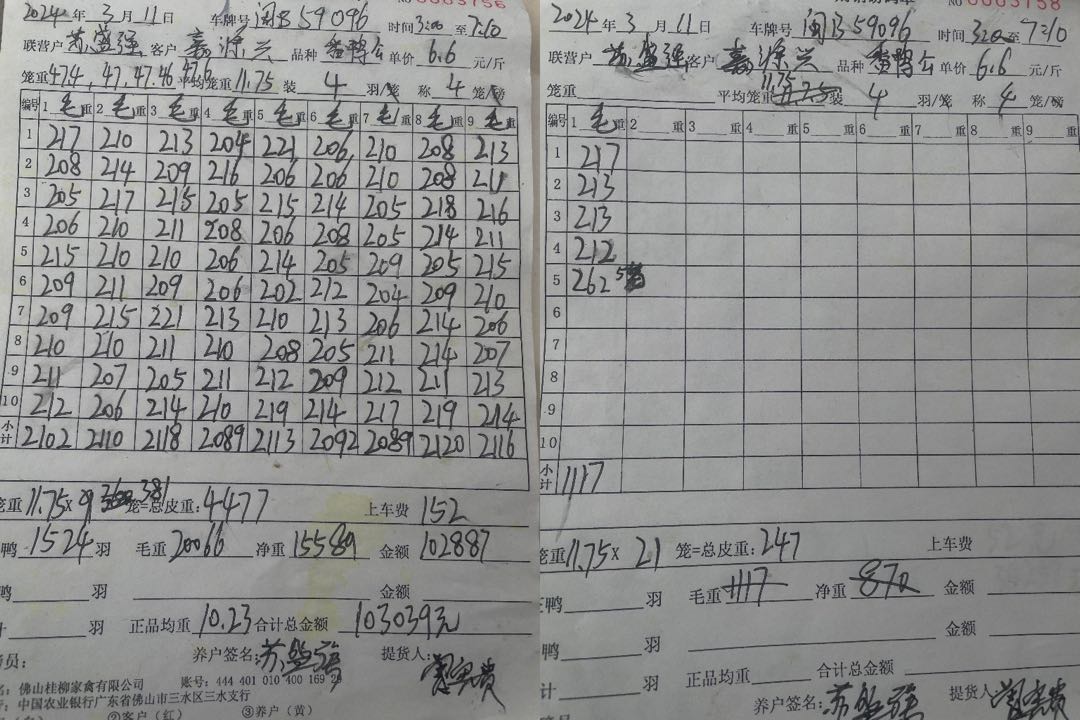 2024年 3月 11日 车牌号 闽B59096 时间 3:20 至 7:10
联营户 苏盛强 客户 嘉涂兴 品种 番鸭公 单价 6.6 元/斤
笼重 47.4, 47, 47.46 47.6 平均笼重 11.75 装 4 羽/笼 称 4 笼/磅
编号 1 毛重 2 毛重 3 毛重 4 毛重 5 毛重 6 毛重 7 毛重 8 毛重 9 毛重
1 217 210 213 204 221 206 210 208 213
2 208 214 209 216 206 206 210 208 211
3 205 217 215 205 215 214 205 218 216
4 206 210 211 208 206 208 205 214 211
5 215 210 210 206 214 205 209 205 215
6 209 211 209 206 202 212 204 209 210
7 209 215 221 213 210 213 206 214 206
8 210 210 211 210 208 205 211 214 207
9 211 207 205 211 212 209 212 211 213
10 212 206 214 210 219 214 217 219 214
小计 2102 2110 2118 2089 2113 2092 2089 2120 2116
笼重 11.75× 381 笼=总皮重: 4477 上车费 152
鸭 1524 羽 毛重 20066 净重 15589 金额 102887
鸭 羽 金额
计 羽 正品均重 10.23 合计总金额 103039元
养户签名: 苏盛强 提货人:
务员:
名: 佛山桂柳家禽有限公司 账号: 444 401 010 400 169 28
行: 中国农业银行广东省佛山市三水区三水支行
②客户（红） ③养户（黄）
No 0003158
2024年 3月 11日 车牌号 闽B59096 时间 3:20 至 7:10
联营户 苏盛强 客户 嘉涂兴 品种 番鸭公 单价 6.6 元/斤
笼重 平均笼重 11.75 装 4 羽/笼 称 4 笼/磅
编号 1 毛重 2 重 3 重 4 重 5 重 6 重 7 重 8 重 9 重
1 217
2 213
3 213
4 212
5 262 5笼
6
7
8
9
10
小计 1117
笼重 11.75× 21 笼=总皮重: 247 上车费
鸭 羽 毛重 1117 净重 870 金额
鸭 羽 金额
计 羽 正品均重 合计总金额
养户签名: 苏盛强 提货人